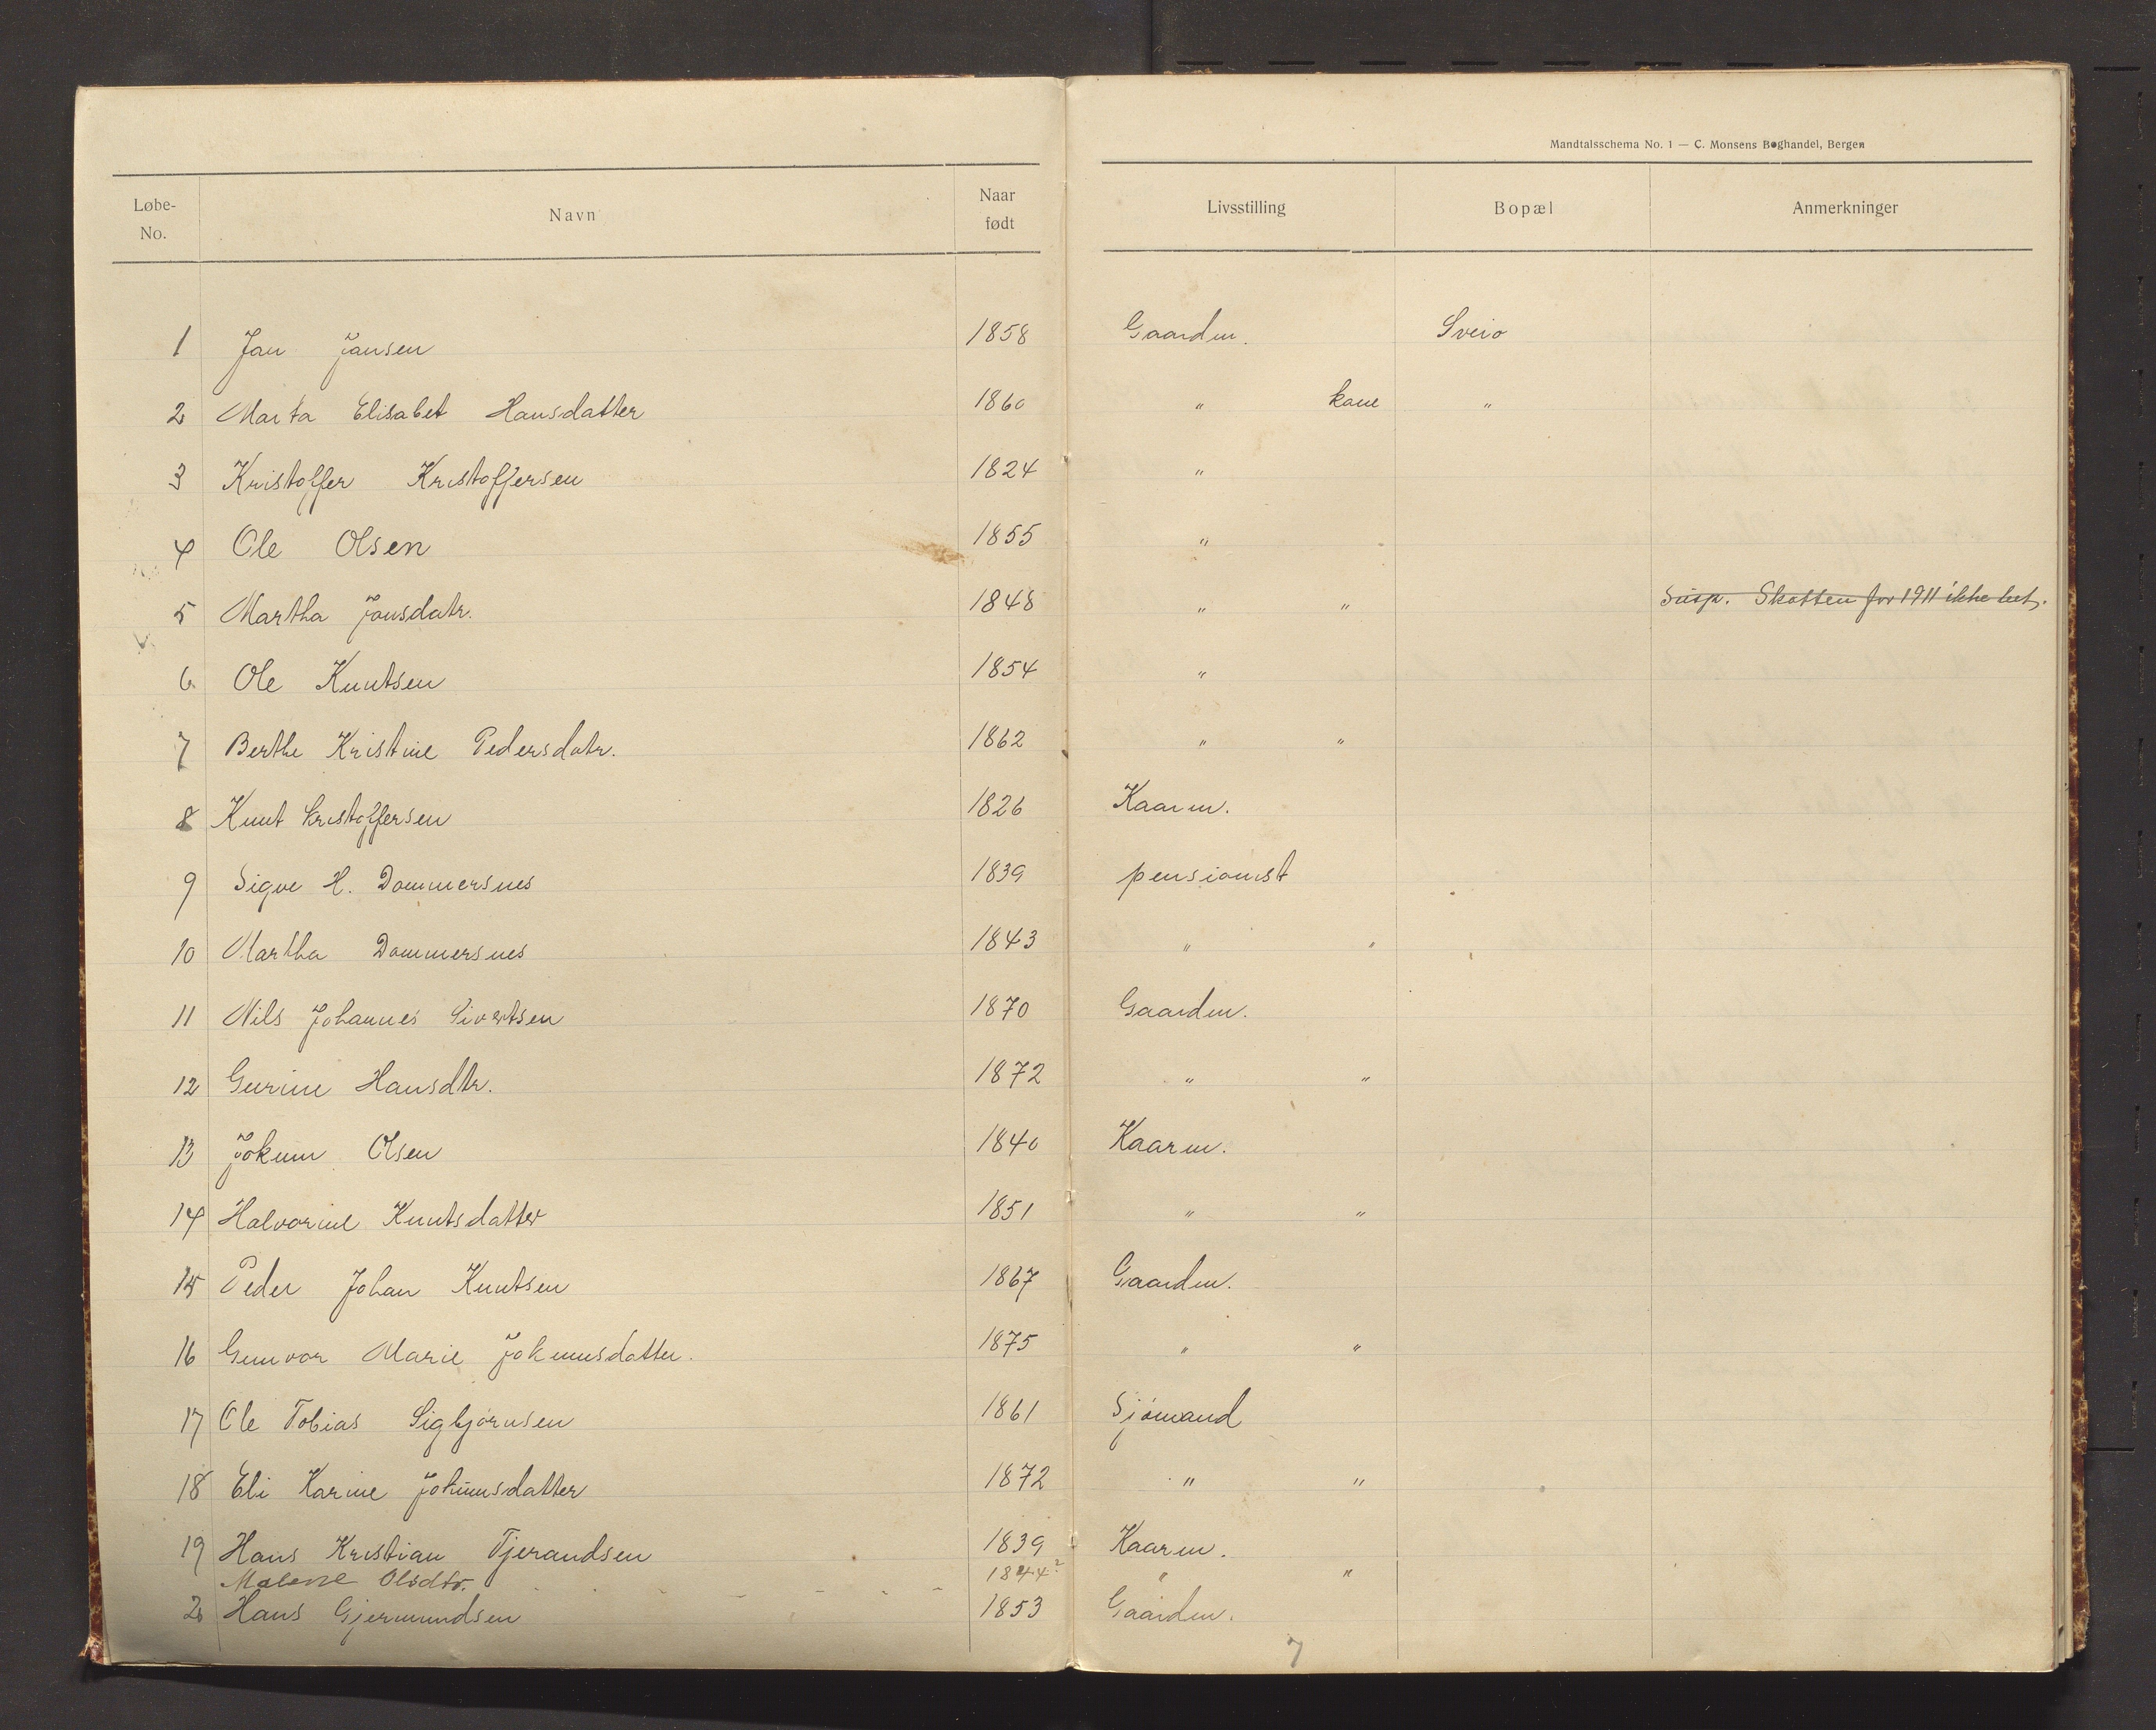 Mandtalsschema No. 1 — C. Monsens Boghandel, Bergen
Løbe-No. Navn Naar født Livsstilling Bopæl Anmerkninger
1 Jan Jansen 1858 Gaardm. Sveio
2 Marta Elisabet Hansdatter 1860 " kone "
3 Kristoffer Kristoffersen 1824 "
4 Ole Olsen 1855 "
5 Martha Jonsdatr. 1848 " " Susp. Skatten for 1911 ikke bet.
6 Ole Knutsen 1854 "
7 Berthe Kristine Pedersdatr. 1862 " "
8 Knut Kristoffersen 1826 Kaarm.
9 Sigve H. Dommersnes 1839 pensionist
10 Martha Dommersnes 1843 " "
11 Nils Johannes Sivertsen 1870 Gaardm.
12 Gurine Hansdtr. 1872 " "
13 Jokum Olsen 1840 Kaarm.
14 Halvorine Knutsdatter 1851 " "
15 Peder Johan Knutsen 1867 Gaardm.
16 Gunvor Marie Jokumsdatter. 1875 " "
17 Ole Tobias Sigbjørnsen 1861 Sjömand
18 Eli Karine Jokumsdatter 1872 " "
19 Hans Kristian Tjerandsen 1839 Kaarm.
Malene Olsdtr. 1844? " "
20 Hans Gjermundsen 1853 Gaardm.
7